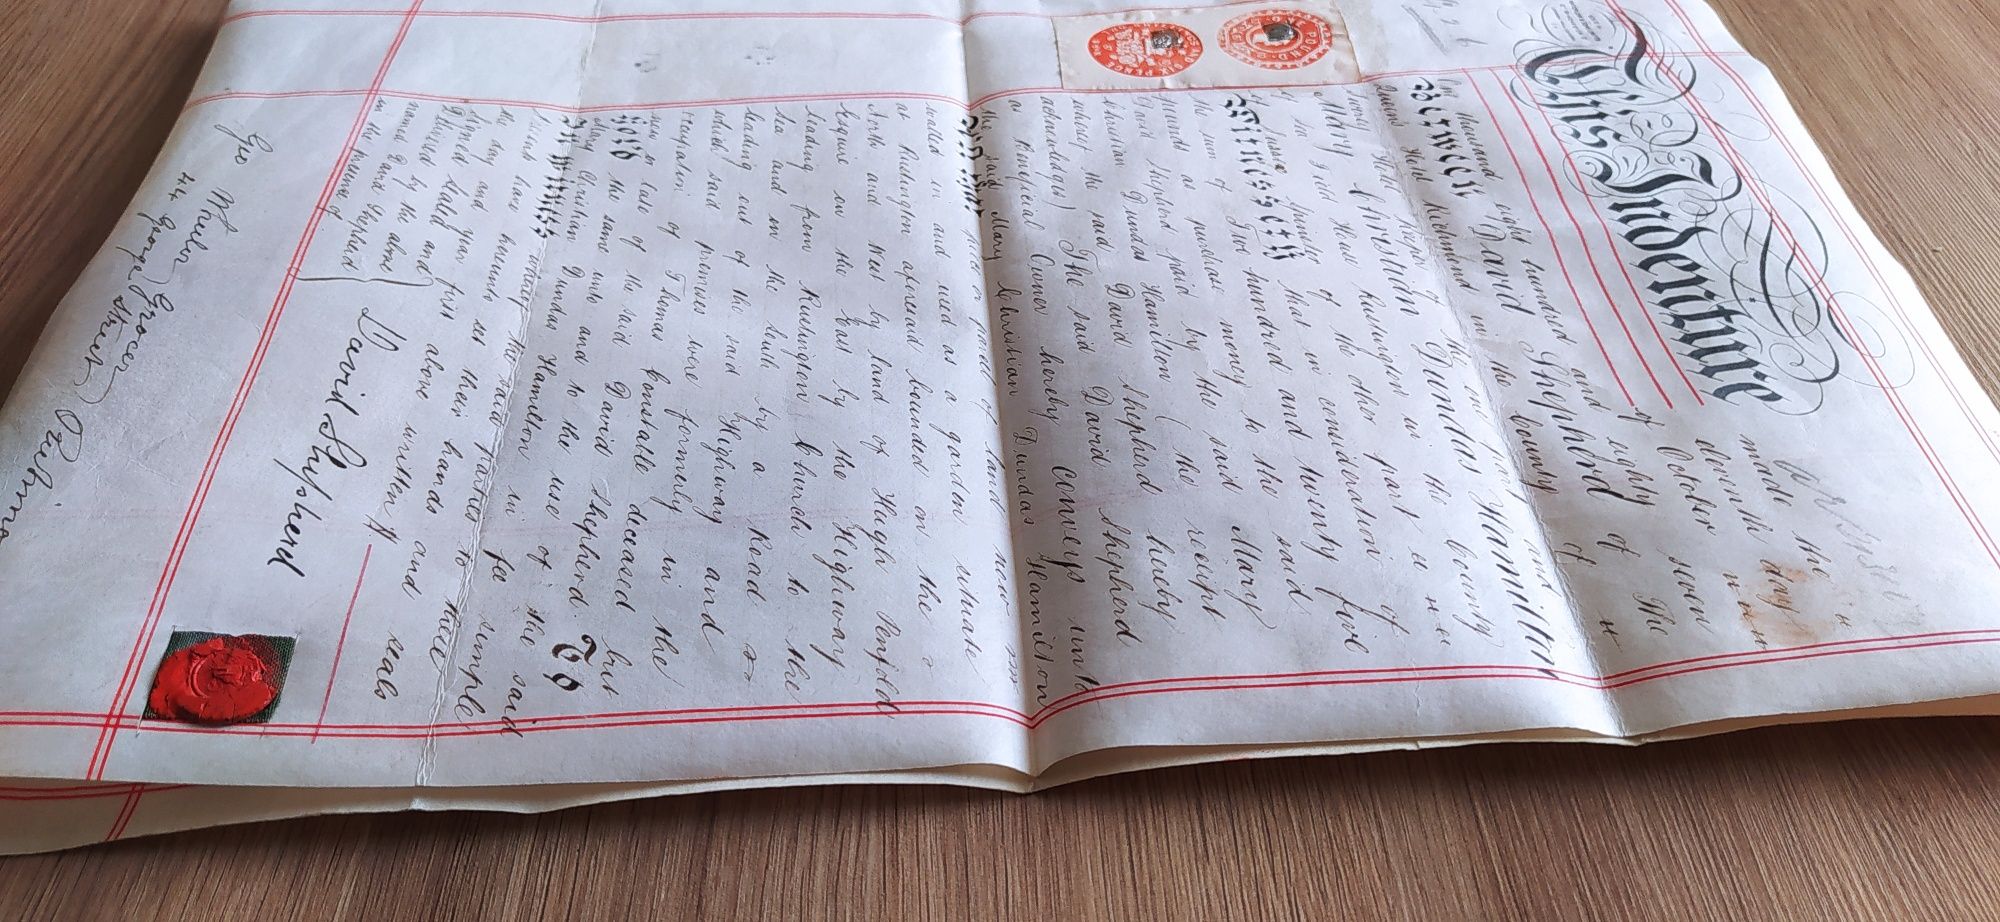 This Indenture
made the
eleventh day
of October
One thousand eight hundred and eighty seven
Between David Shepherd of The
Queens Head Richmond in the County of
Surrey of the one part and
Mary Christian Dundas Hamilton
of Sea View Rustington in the County
of Sussex Spinster of the other part
Witnesseth that in consideration of
the sum of Two hundred and twenty five
pounds as purchase money to the said
David Shepherd paid by the said Mary
Christian Dundas Hamilton (the receipt
whereof the said David Shepherd hereby
acknowledges) The said David Shepherd
as Beneficial Owner hereby conveys unto
the said Mary Christian Dundas Hamilton
All that piece or parcel of land now
walled in and used as a garden situate
at Rustington aforesaid bounded on the
North and West by land of Hugh Penfold
Esquire on the East by the Highway
leading from Rustington Church to the
Sea and on the South by a Road
leading out of the said Highway and
which said premises were formerly in the
occupation of Thomas Constable deceased but
now or late of the said David Shepherd To
hold the same unto and to the use of the said
Mary Christian Dundas Hamilton in fee simple
In Witness whereof the said parties to these
presents have hereunto set their hands and seals
the day and year first above written
Signed sealed and
delivered by the above
named David Shepherd
in the presence of
David Shepherd
Geo Wheeler Grocer
44 George Street Richmond
POUND
AND SIX PENCE